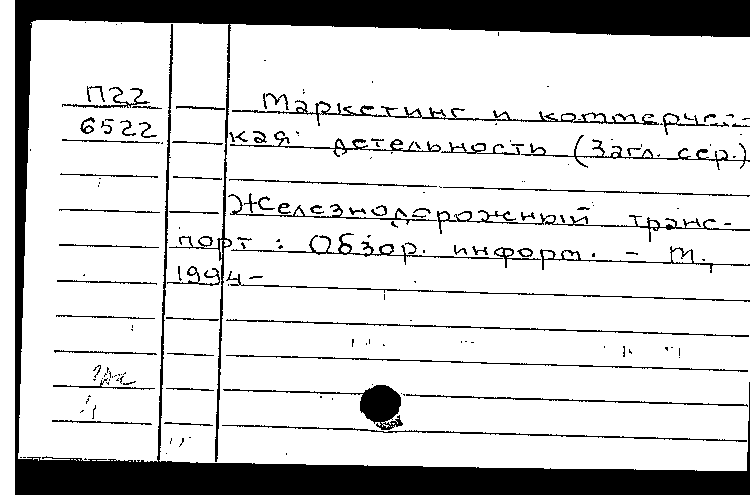 П22
6522
Маркетинг и коммерчес-
кая детельность (Загл. сер.)
Железнодорожный транс-
порт : Обзор. информ. - М.,
1994-